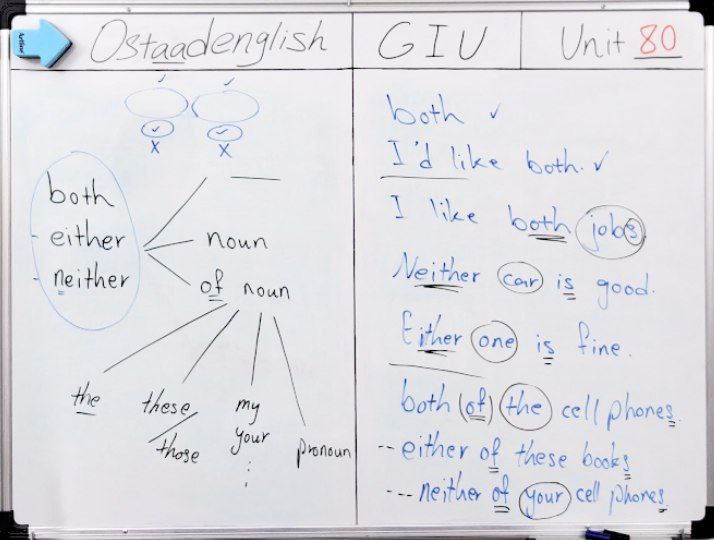 Artline
Ostaadenglish
GIU
Unit 80
✓ ✓
✓ ✓
X X
both
either
neither
noun
of noun
the
these
those
my
your
pronoun
both ✓
I'd like both. ✓
I like both jobs
Neither car is good.
Either one is fine.
both (of) the cell phones.
-- either of these books
--- neither of your cell phones